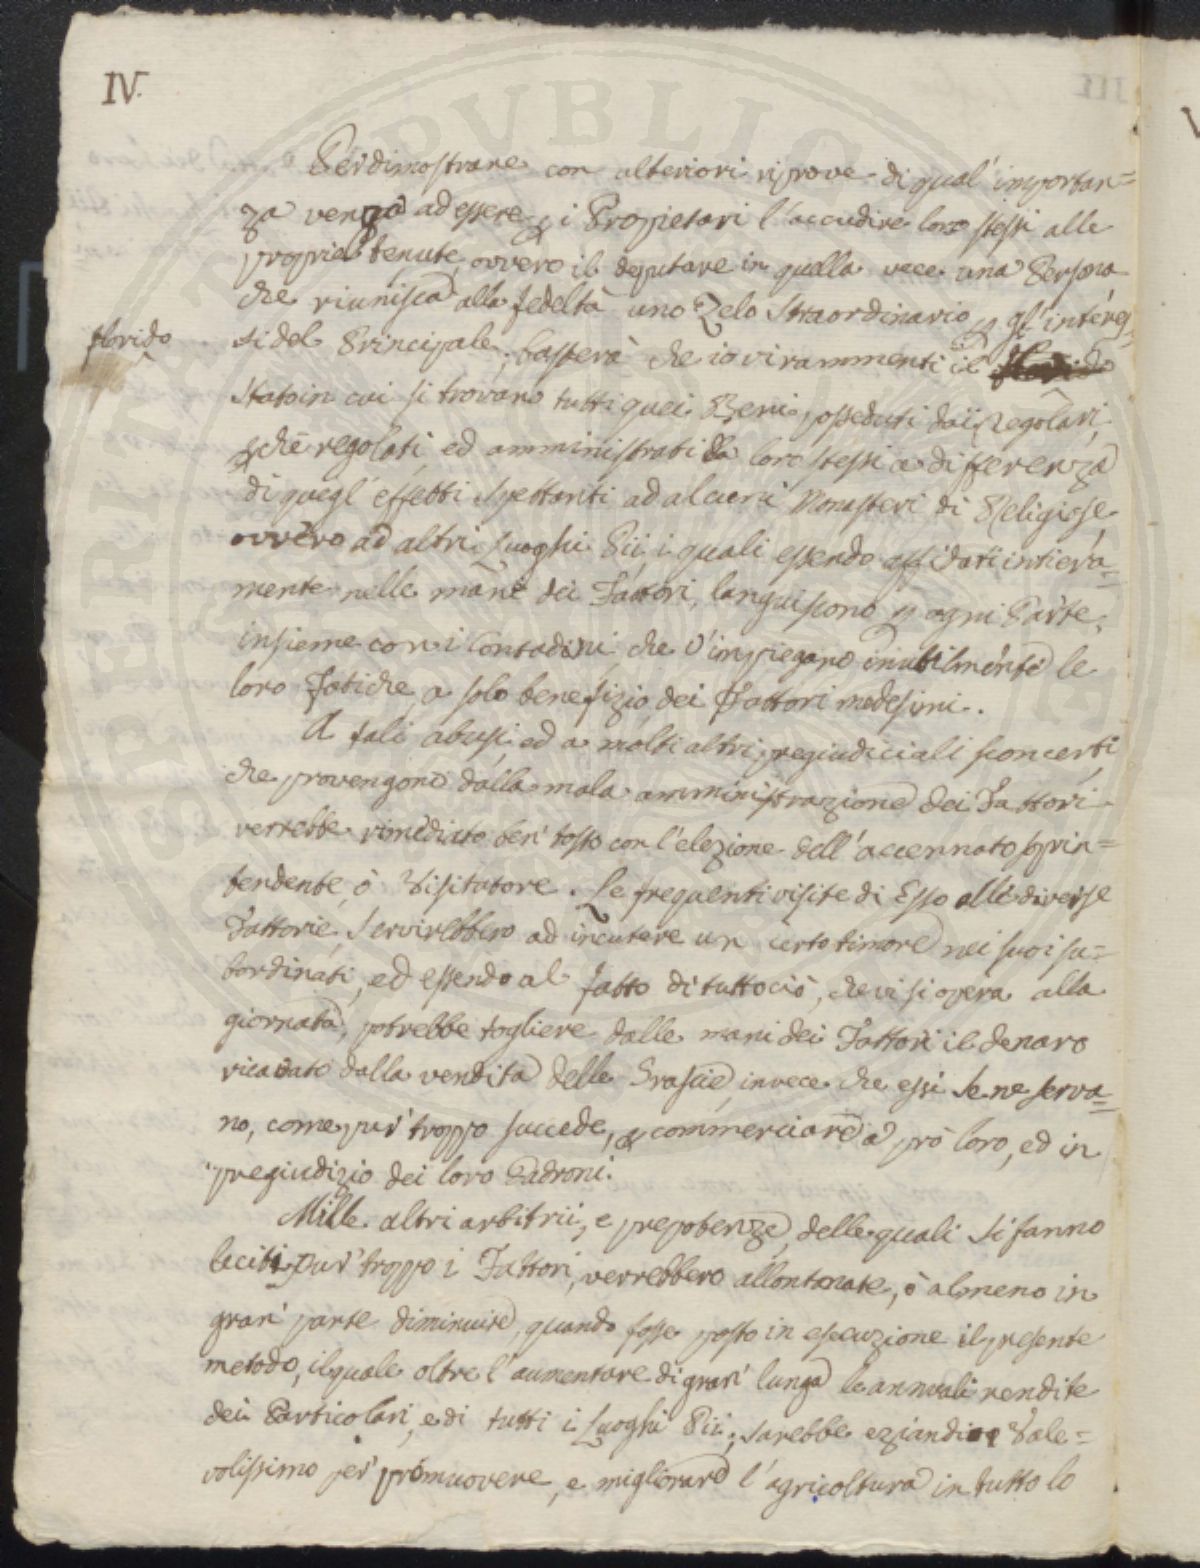 IV.
Per dimostrare con ulteriori riprove di qual' importan=
za venga ad essere p i Propietari l'accudire loro stessi alle
proprie tenute, ovvero il deputare in quella vece una Persona
che riunisca alla fedeltà uno Zelo straordinario p gl' interes=
si del Principale, basterà che io vi rammenti il florido
florido
stato in cui si trovano tutti quei Beni posseduti dai Regolari,
p chè regolati, ed amministrati da loro stessi a differenza
di quegl' effetti spettanti ad alcuni Monasteri di Religiose,
ovvero ad altri Luoghi Pii, i quali essendo affidati intiera=
mente nelle mani dei Fattori, languiscono p ogni Parte,
insieme con i Contadini che v' impiegano inutilmente le
loro Fatiche, a solo benefizio dei Fattori medesimi.
A tali abusi, ed a molti altri pregiudiciali sconcerti,
che provengono dalla mala amministrazione dei Fattori
verrebbe rimediato ben' tosto con l'elezione dell' accennato soprin=
tendente, ò Visitatore. Le frequenti visite di Esso alle diverse
Fattorie, servirebbero ad incutere un certo timore nei suoi su=
bordinati, ed essendo al fatto di tuttociò, che vi si opera alla
giornata, potrebbe togliere dalle mani dei Fattori il denaro
ricavato dalla vendita delle Grascie, invece che essi se ne serva=
no, come pur' troppo succede, p commerciare a prò loro, ed in
pregiudizio dei loro Padroni.
Mille altri arbitrii, e prepotenze, delle quali si fanno
leciti pur' troppo i Fattori, verrebbero allontanate, ò almeno in
gran' parte diminuite, quando fosse posto in esecuzione il presente
metodo, il quale oltre l' aumentare di gran' lunga le annuali rendite
dei Particolari, e di tutti i Luoghi Pii, sarebbe eziandio Vale=
volissimo per promuovere, e migliorare l' agricoltura in tutto lo